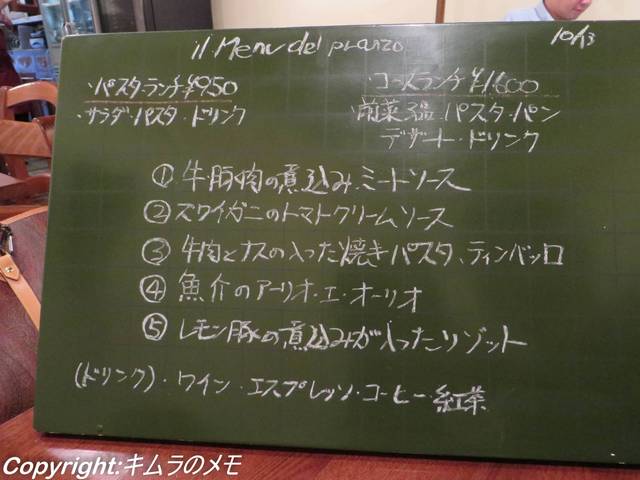 il Menu del pranzo
10/13
・パスタランチ¥950
・サラダ・パスタ・ドリンク
・コースランチ¥1,600
前菜3品・パスタ・パン
デザート・ドリンク
① 牛・豚肉の煮込みミートソース
② ズワイガニのトマトクリームソース
③ 牛肉とナスの入った焼きパスタ、ティンバッロ
④ 魚介のアーリオ・エ・オーリオ
⑤ レモン豚の煮込みが入ったリゾット
(ドリンク)・ワイン・エスプレッソ・コーヒー・紅茶
Copyright:キムラのメモ